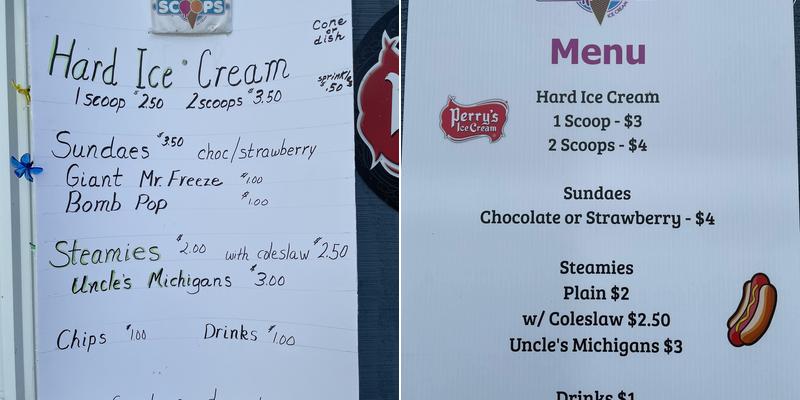 SCOOPS
Cone
or
dish
Hard Ice Cream
sprinkle
.50
1 scoop $2.50 2 scoops $3.50
Sundaes $3.50 choc/strawberry
Giant Mr. Freeze $1.00
Bomb Pop $1.00
Steamies $2.00 with coleslaw $2.50
Uncle's Michigans $3.00
Chips $1.00 Drinks $1.00
ICE CREAM
Menu
Perry's
Ice Cream
Hard Ice Cream
1 Scoop - $3
2 Scoops - $4
Sundaes
Chocolate or Strawberry - $4
Steamies
Plain $2
w/ Coleslaw $2.50
Uncle's Michigans $3
Drinks $1